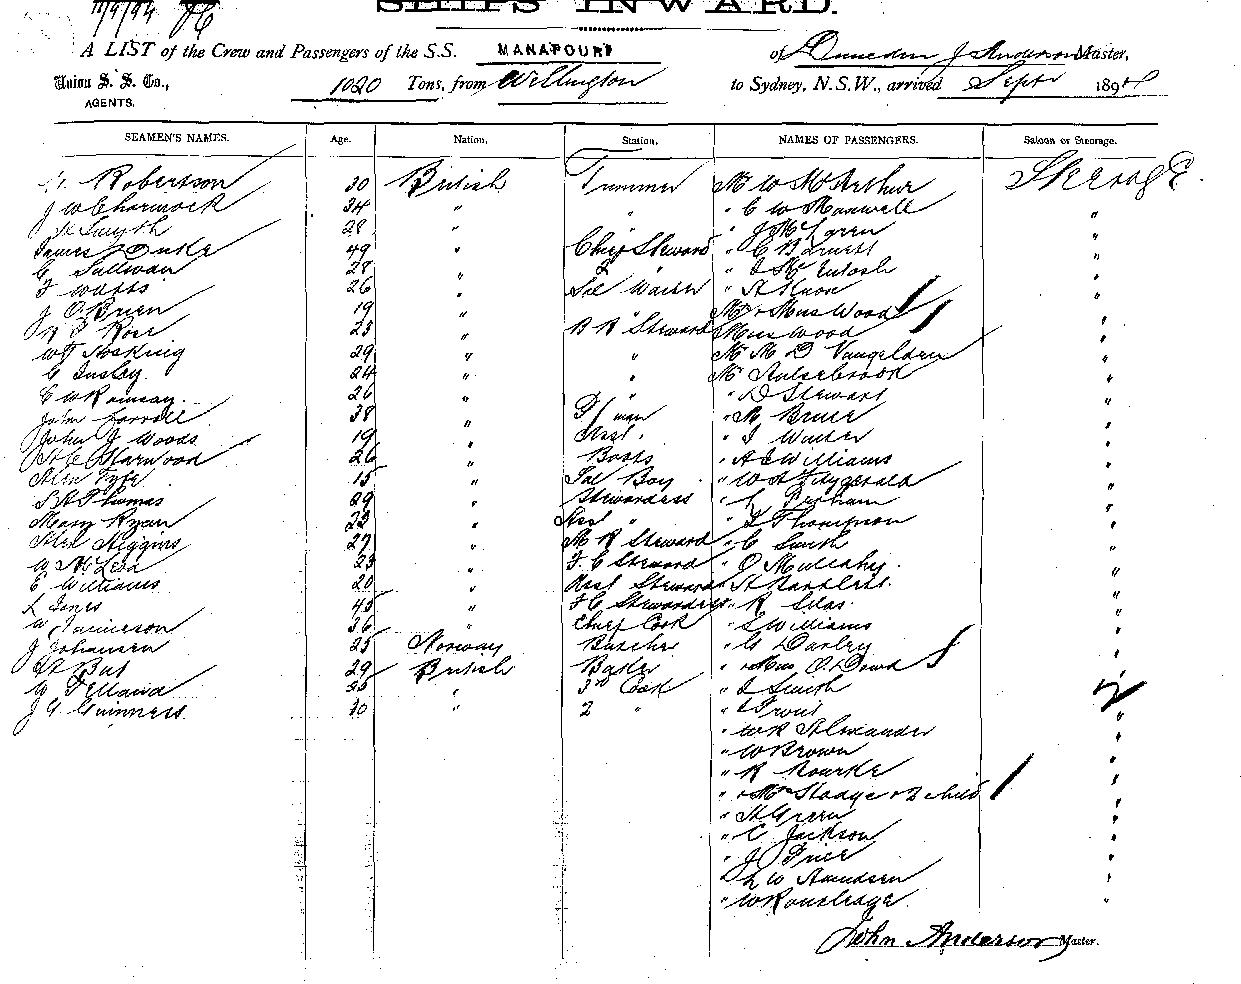 11/9/94
SHIPS INWARD.
A LIST of the Crew and Passengers of the S.S. MANAPOURI of Dunedin J Anderson Master,
Union S. S. Co., AGENTS. 1020 Tons, from Wellington to Sydney, N.S.W., arrived Sept 1894
SEAMEN'S NAMES. Age. Nation. Station. NAMES OF PASSENGERS. Saloon or Steerage.
Robertson 30 British Trimmer Mr W McArthur Steerage
J W Charnock 34 " " " C W Maxwell "
Smyth 28 " " J McLaren "
James Duke 49 " Chief Steward " C "
G Sullivan 28 2 " " J McIntosh "
F Watts 26 " Sal Waiter " "
J O'Brien 19 " " Mr & Mrs Wood "
Rose 23 " B R Steward Miss Wood "
Hosking 29 " " Mr M D Vangelder "
G Insley 24 " " Mr "
C W Ramsay 26 " " " D Stewart "
John Farrell 38 " P/man " M Bruce "
John J Woods 19 " Asst. " J Walker "
Harwood 26 " Boots " A E Williams "
Alex Fyfe 15 " Sal Boy " W A Fitzgerald "
Thomas 29 " Stewardess " Perham "
Mary Ryan 23 " Asst " " J Thompson "
Mrs Higgins 27 " M R Steward " C Smith "
W McLeod 23 " F. C Steward " O Mulcahy "
E Williams 20 " Asst Steward "
L Jones 45 " F C Stewardess " R Silas "
W Jamieson 36 " Chief Cook " S Williams "
J Johansen 25 Norway Butcher " G Darley "
But 29 British Baker " & Mrs O'Dowd "
W " 3rd Cook " J Smith
J G Guinness 30 " 2 " " "
" W R Alexander "
" W Brown "
" R Rourke "
" & Mrs & 2 child "
" H Green "
" C Jackson "
" J Price "
" L W Amundsen "
" W Routledge "
John Anderson Master.